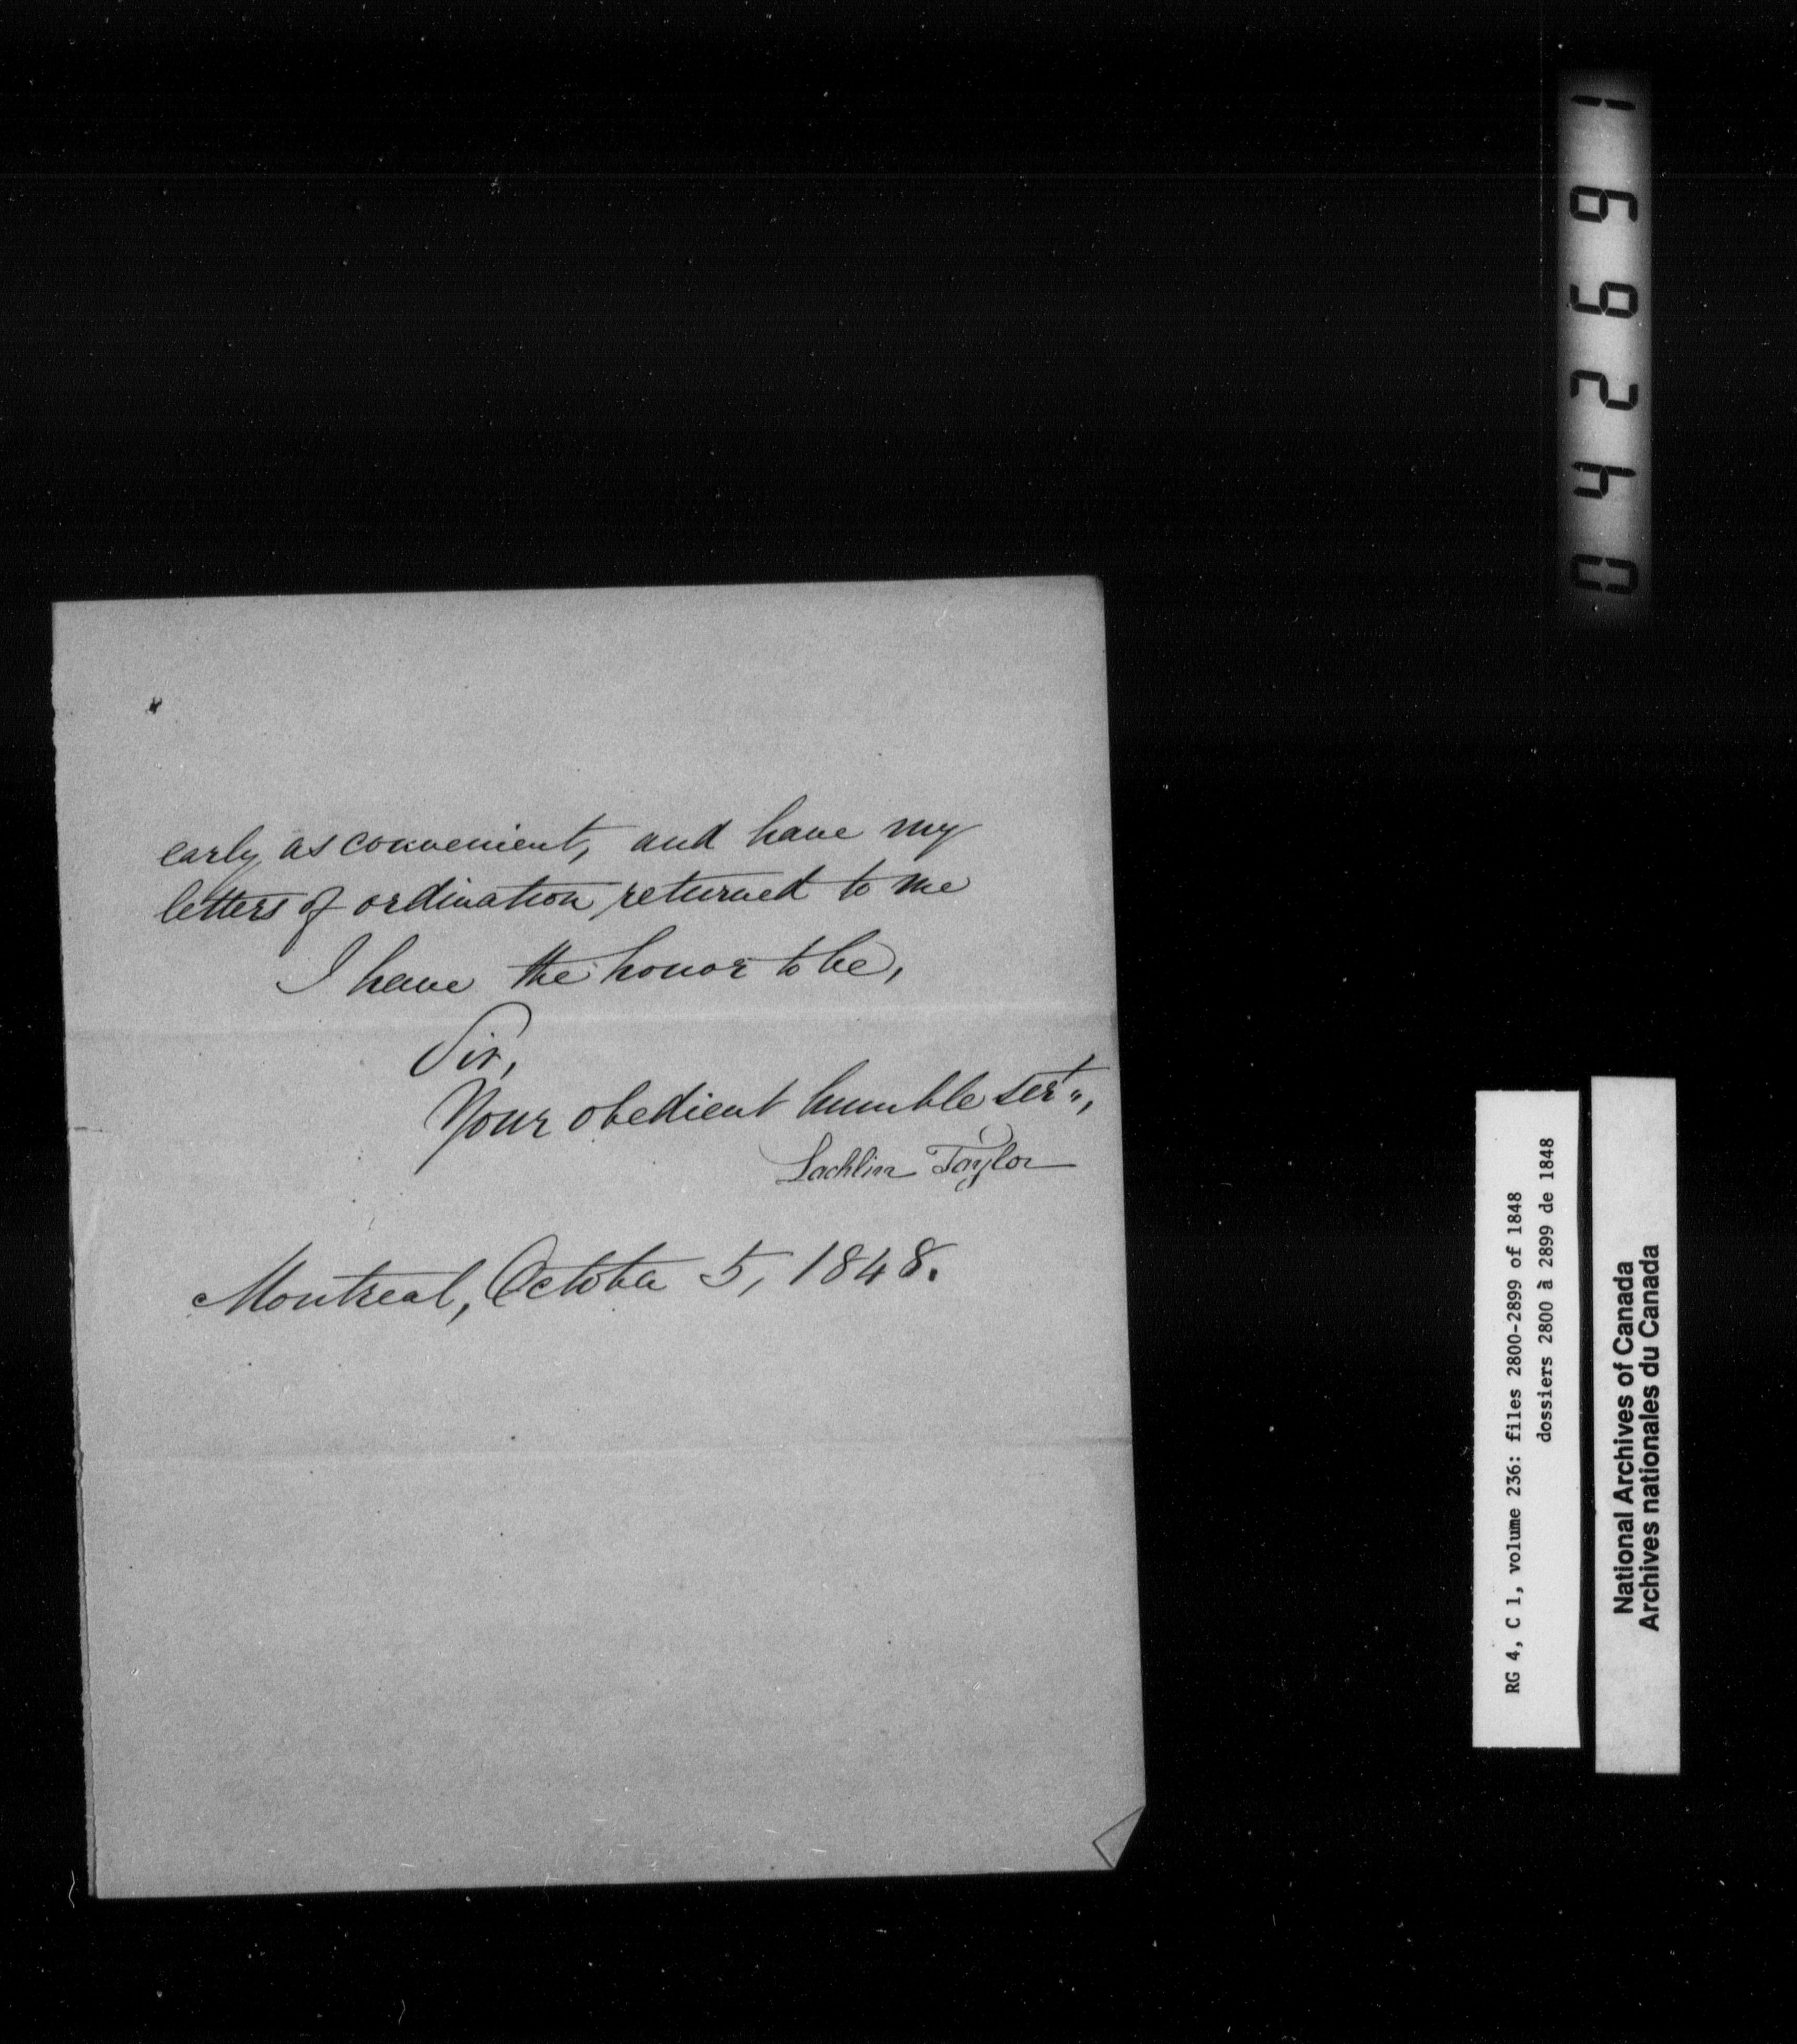 early as convenient, and have my
letters of ordination returned to me
I have the honor to be,
Sir,
Your obedient humble sert.,
Lachlin Taylor
Montreal, October 5, 1848.
042691
RG 4, C 1, volume 236: files 2800-2899 of 1848
dossiers 2800 à 2899 de 1848
National Archives of Canada
Archives nationales du Canada